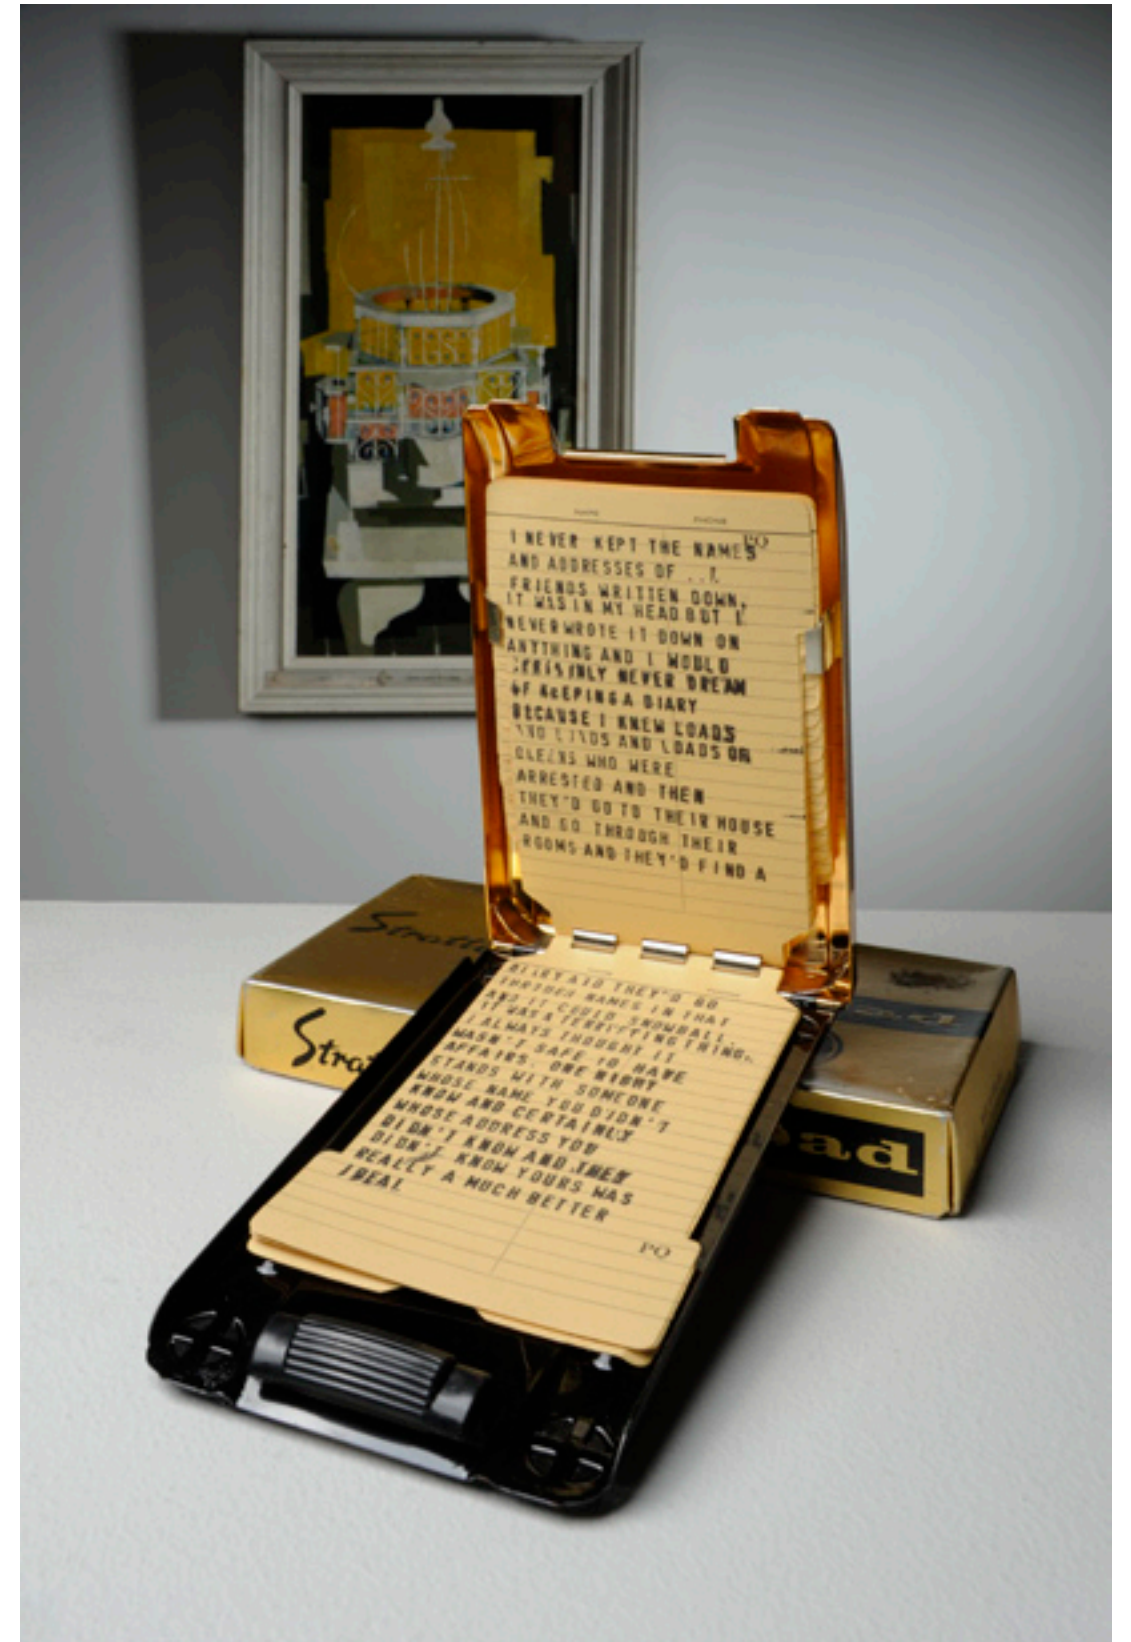 NAME PHONE
PQ
I NEVER KEPT THE NAMES
AND ADDRESSES OF
FRIENDS WRITTEN DOWN,
IT WAS IN MY HEAD BUT I
NEVER WROTE IT DOWN ON
ANYTHING AND I WOULD
CERTAINLY NEVER DREAM
OF KEEPING A DIARY
BECAUSE I KNEW LOADS
AND LOADS AND LOADS OF
QUEENS WHO WERE
ARRESTED AND THEN
THEY'D GO TO THEIR HOUSE
AND GO THROUGH THEIR
ROOMS AND THEY'D FIND A
DIARY AND THEY'D GO
THROUGH NAMES IN THAT
AND IT COULD SNOWBALL.
IT WAS A TERRIFYING THING.
I ALWAYS THOUGHT IT
WASN'T SAFE TO HAVE
AFFAIRS. ONE NIGHT
STANDS WITH SOMEONE
WHOSE NAME YOU DIDN'T
KNOW AND CERTAINLY
WHOSE ADDRESS YOU
DIDN'T KNOW AND THEY
DIDN'T KNOW YOURS WAS
REALLY A MUCH BETTER
IDEAL
PQ